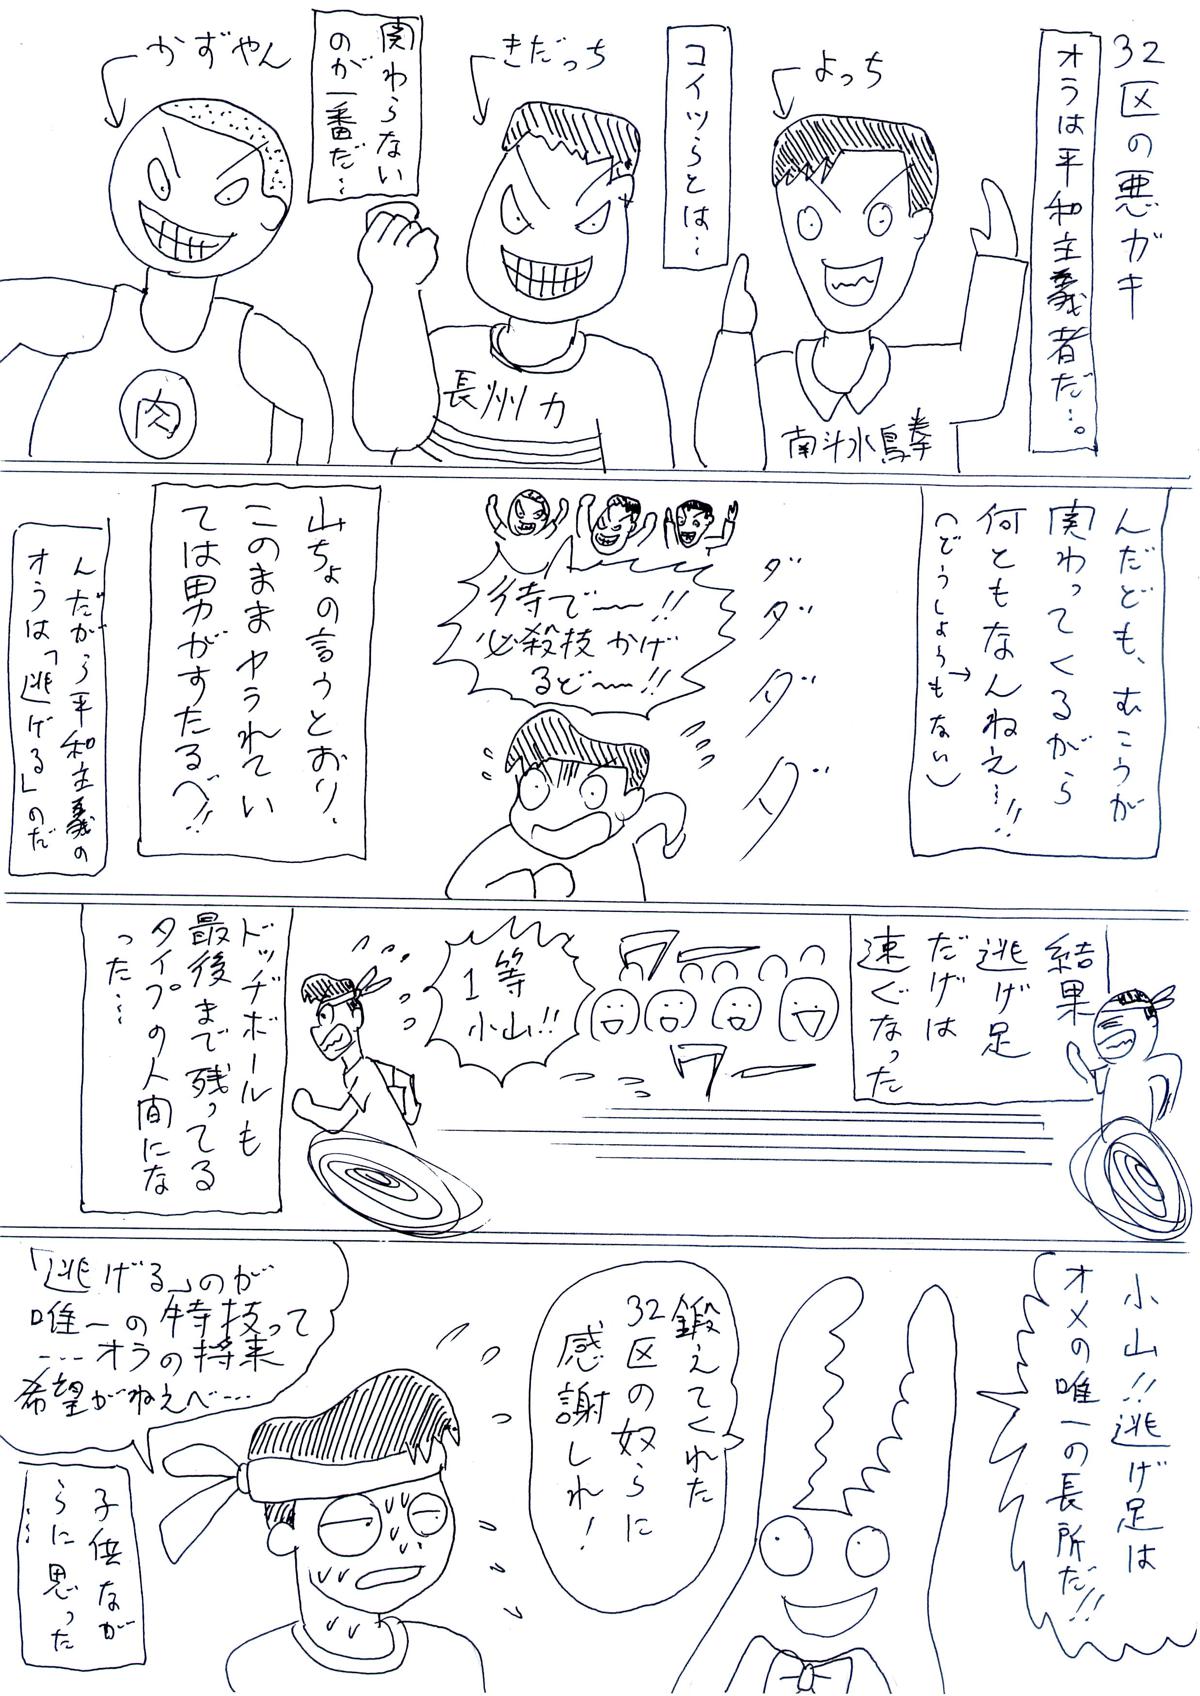 32区の悪ガキ
オラは平和主義者だ…。
よっち
南斗水鳥拳
コイツらとは…
きだっち
長州力
関わらない
のが一番だ…
かずやん
肉
んだども、むこうが
関わってくるがら
何ともなんねえ…!!
(どうしようもない)
ダダダダ
待で〜〜!!
必殺技かげ
るど〜〜!!
山ちょの言うとおり、
このままヤられてい
ては男がすたるべ!!
んだがら平和主義の
オラは「逃げる」のだ
結果
逃げ足
だげは
速ぐなった
ワー
ワー
1等
小山!!
ドッヂボールも
最後まで残ってる
タイプの人間にな
った…
小山!!逃げ足は
オメの唯一の長所だ!!
鍛えてくれた
32区の奴らに
感謝しれ!
「逃げる」のが
唯一の特技って
…オラの将来
希望がねえべ…
子供なが
らに思った
…